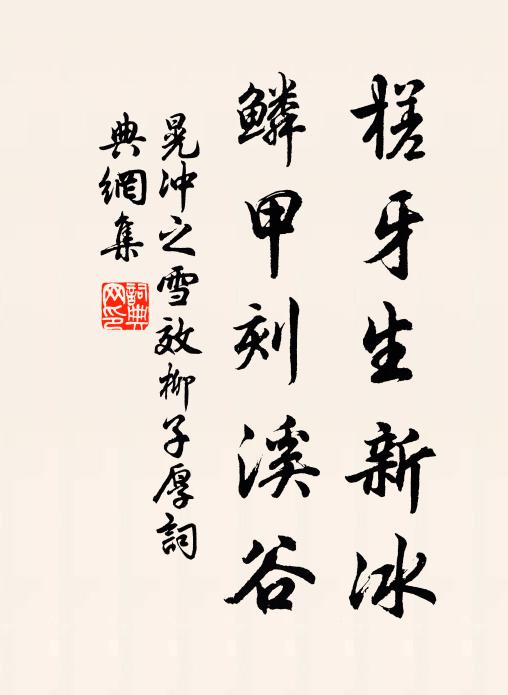 槎牙生新冰
鱗甲刻溪谷
晁沖之雪效柳子厚詞
典網集
詞典
网印